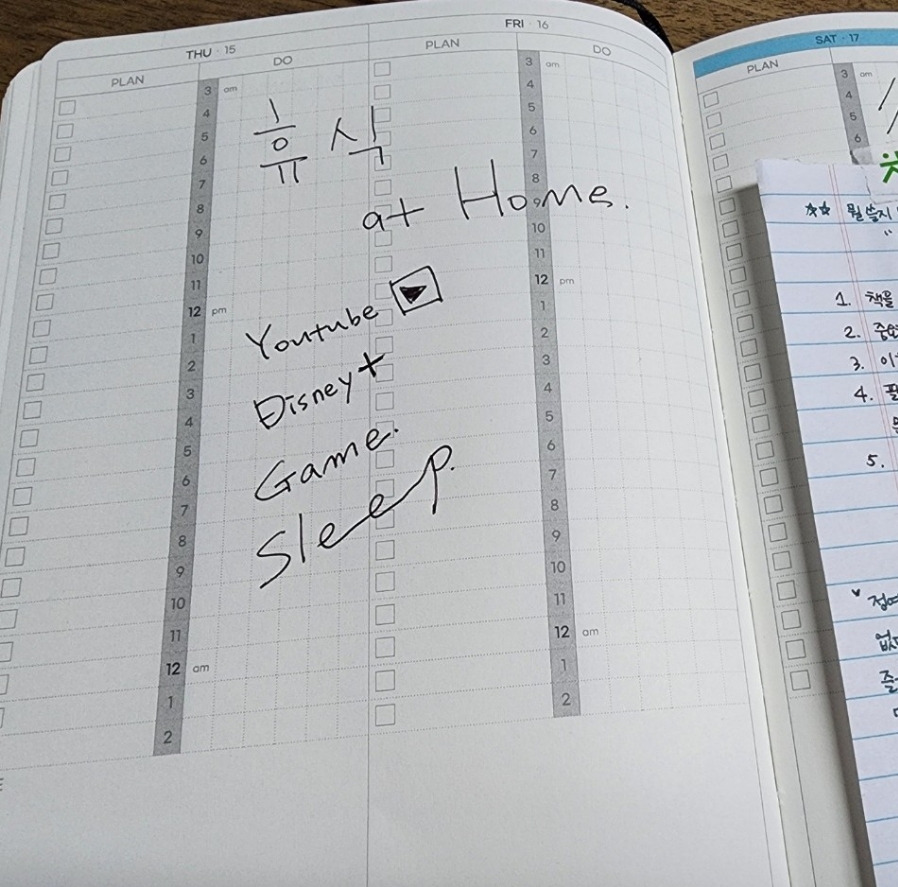 THU · 15
PLAN
DO
3 am
4
5
6
7
8
9
10
11
12 pm
1
2
3
4
5
6
7
8
9
10
11
12 am
1
2
휴식
at Home.
Youtube
Disney+
Game.
Sleep.
FRI · 16
PLAN
DO
3 am
4
5
6
7
8
9
10
11
12 pm
1
2
3
4
5
6
7
8
9
10
11
12 am
1
2
SAT · 17
PLAN
3 am
4
5
6
뭘 쓸지
1. 책을
2.
3.
4.
5.